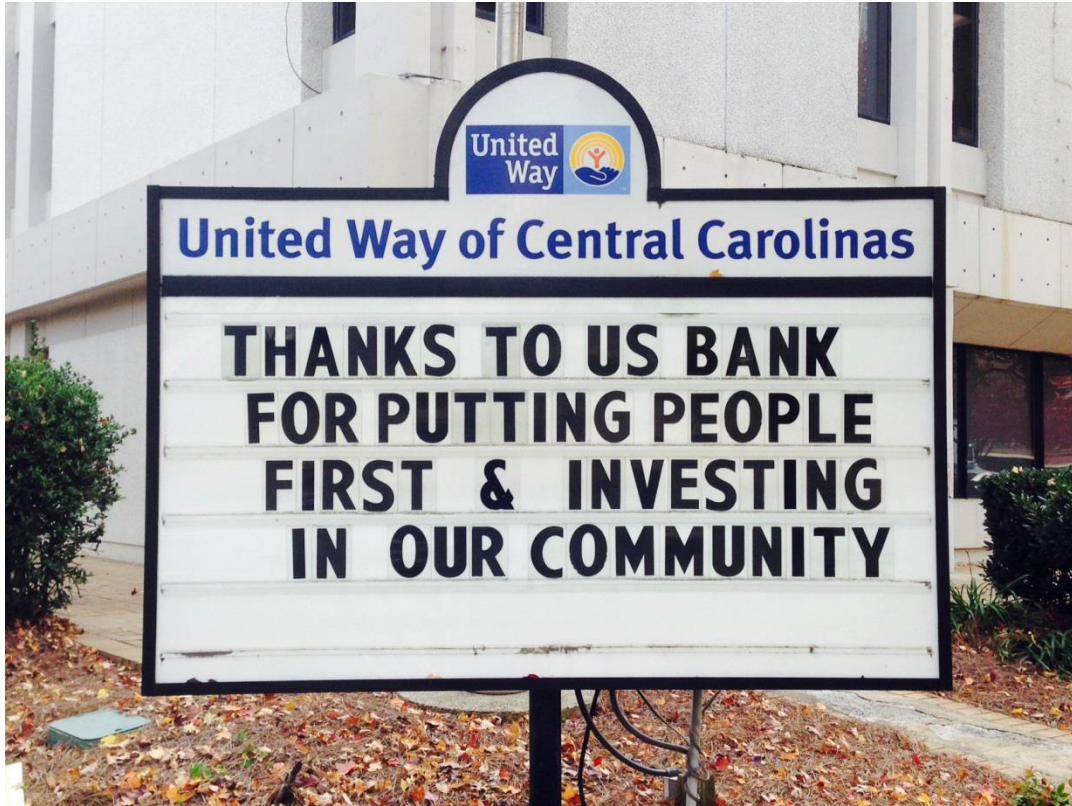 United
Way
United Way of Central Carolinas
THANKS TO US BANK
FOR PUTTING PEOPLE
FIRST & INVESTING
IN OUR COMMUNITY